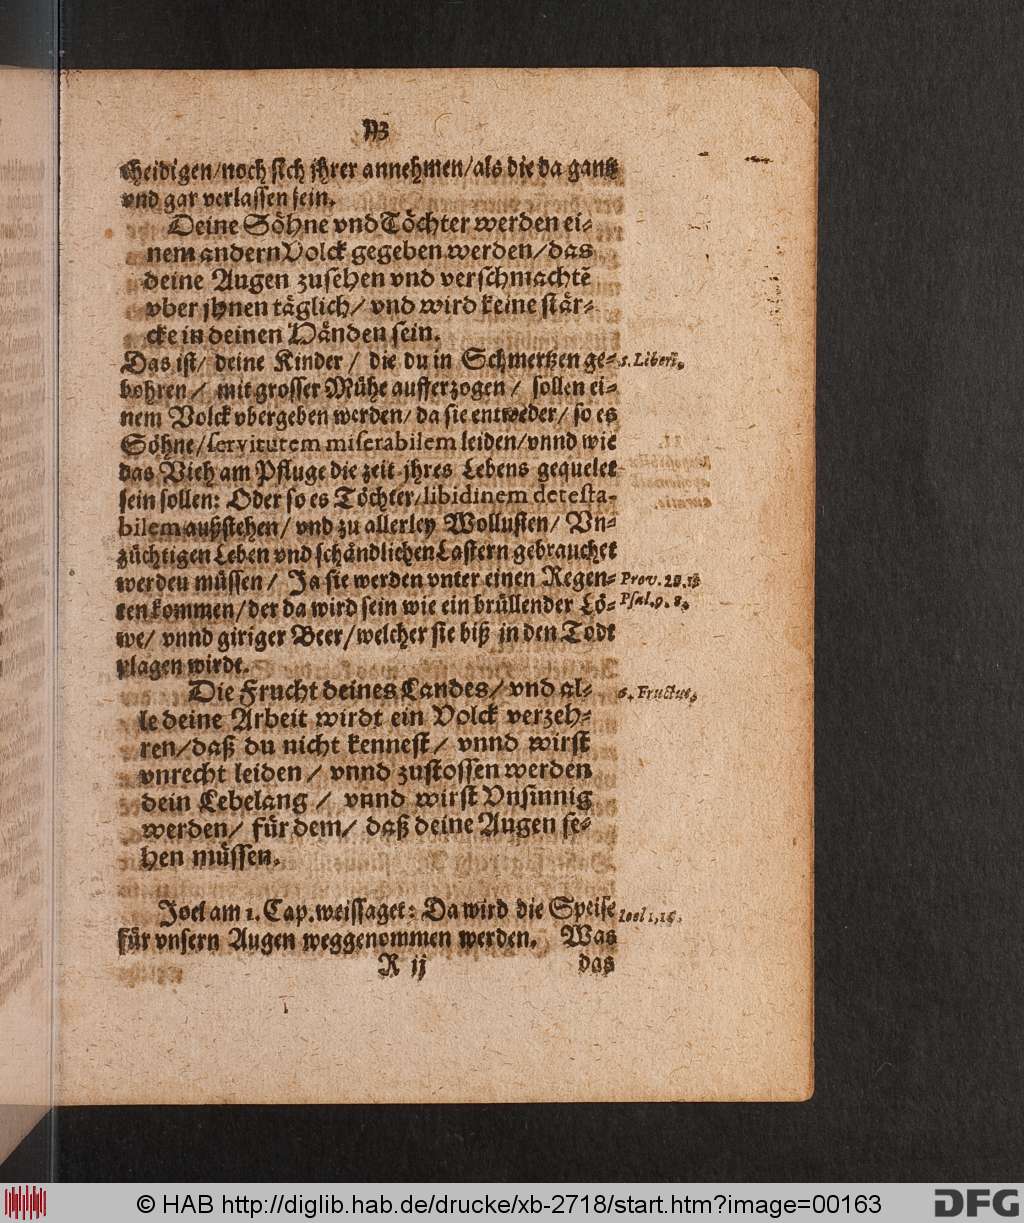 theidigen/noch sich jhrer annehmen/als die da gantz
vnd gar verlassen sein.
Deine Söhne vnd Töchter werden ei-
nem andern Volck gegeben werden/das
deine Augen zusehen vnd verschmachtē
vber jhnen täglich/ vnd wird keine stär-
cke in deinen Händen sein.
Das ist/ deine Kinder / die du in Schmertzen ge- 5. Liberi.
bohren / mit grosser Mühe aufferzogen / sollen ei-
nem Volck vbergeben werden/ da sie entweder/ so es
Söhne/servitutem miserabilem leiden/vnnd wie
das Vieh am Pfluge die zeit jhres Lebens gequelet
sein sollen: Oder so es Töchter/libidinem detesta-
bilem außstehen/ vnd zu allerley Wollusten/ Vn-
züchtigen Leben vnd schändlichen Lastern gebrauchet
werden müssen / Ja sie werden vnter einen Regen- Prov. 28. 15
ten kommen/der da wird sein wie ein brüllender Lö- Psal. 9. 8.
we/ vnnd giriger Beer/welcher sie biß in den Todt
plagen wirdt.
Die Frucht deines Landes/ vnd al- 6. Fructus.
le deine Arbeit wirdt ein Volck verzeh-
ren/daß du nicht kennest/ vnnd wirst
vnrecht leiden / vnnd zustossen werden
dein Lebelang / vnnd wirst Vnsinnig
werden/ für dem/ daß deine Augen se-
hen müssen.
Joel am 1. Cap. weissaget: Da wird die Speise Ioel 1, 16.
für vnsern Augen weggenommen werden. Was
R ij das
© HAB http://diglib.hab.de/drucke/xb-2718/start.htm?image=00163
DFG